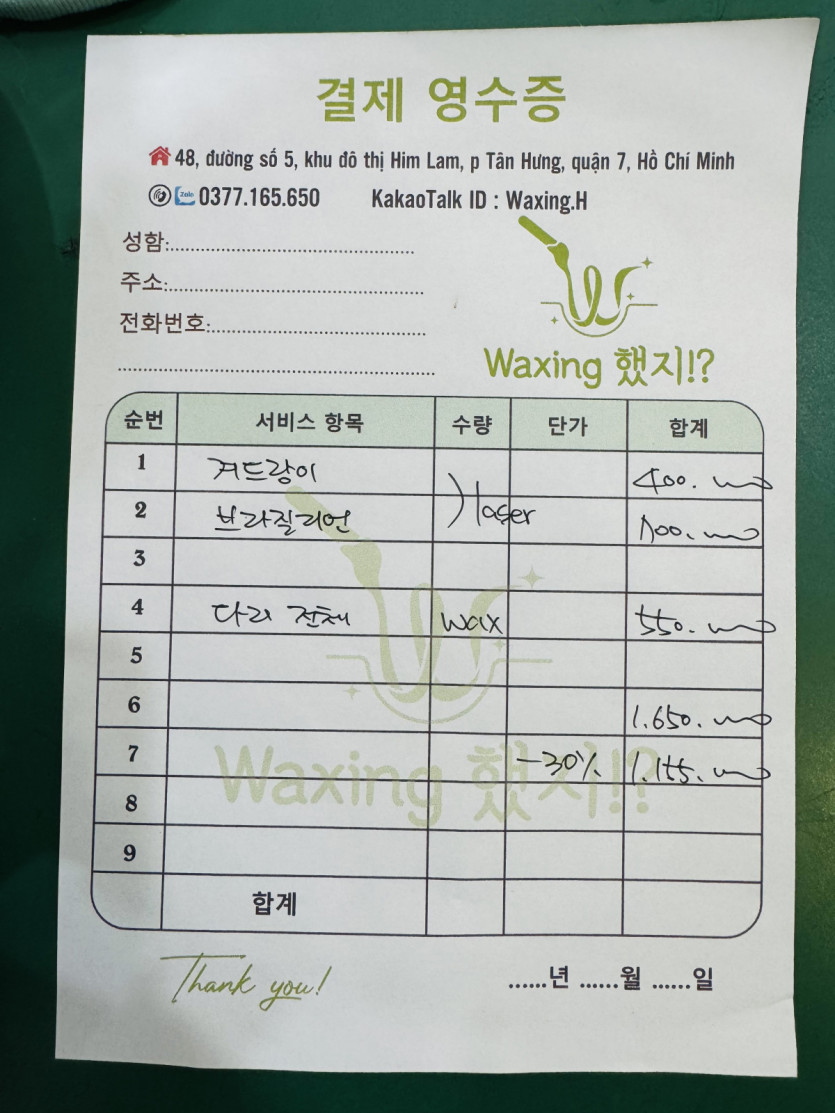 결제 영수증
48, đường số 5, khu đô thị Him Lam, p Tân Hưng, quận 7, Hồ Chí Minh
Zalo 0377.165.650 KakaoTalk ID : Waxing.H
성함:
주소:
전화번호:
Waxing 했지!?
순번 서비스 항목 수량 단가 합계
1 겨드랑이 400.
2 브라질리언 laser 700.
3
4 다리 전체 wax 550.
5
6 1.650.
7 -30% 1.155.
8
9
합계
Waxing 했지!?
Thank you!
......년 ......월 ......일